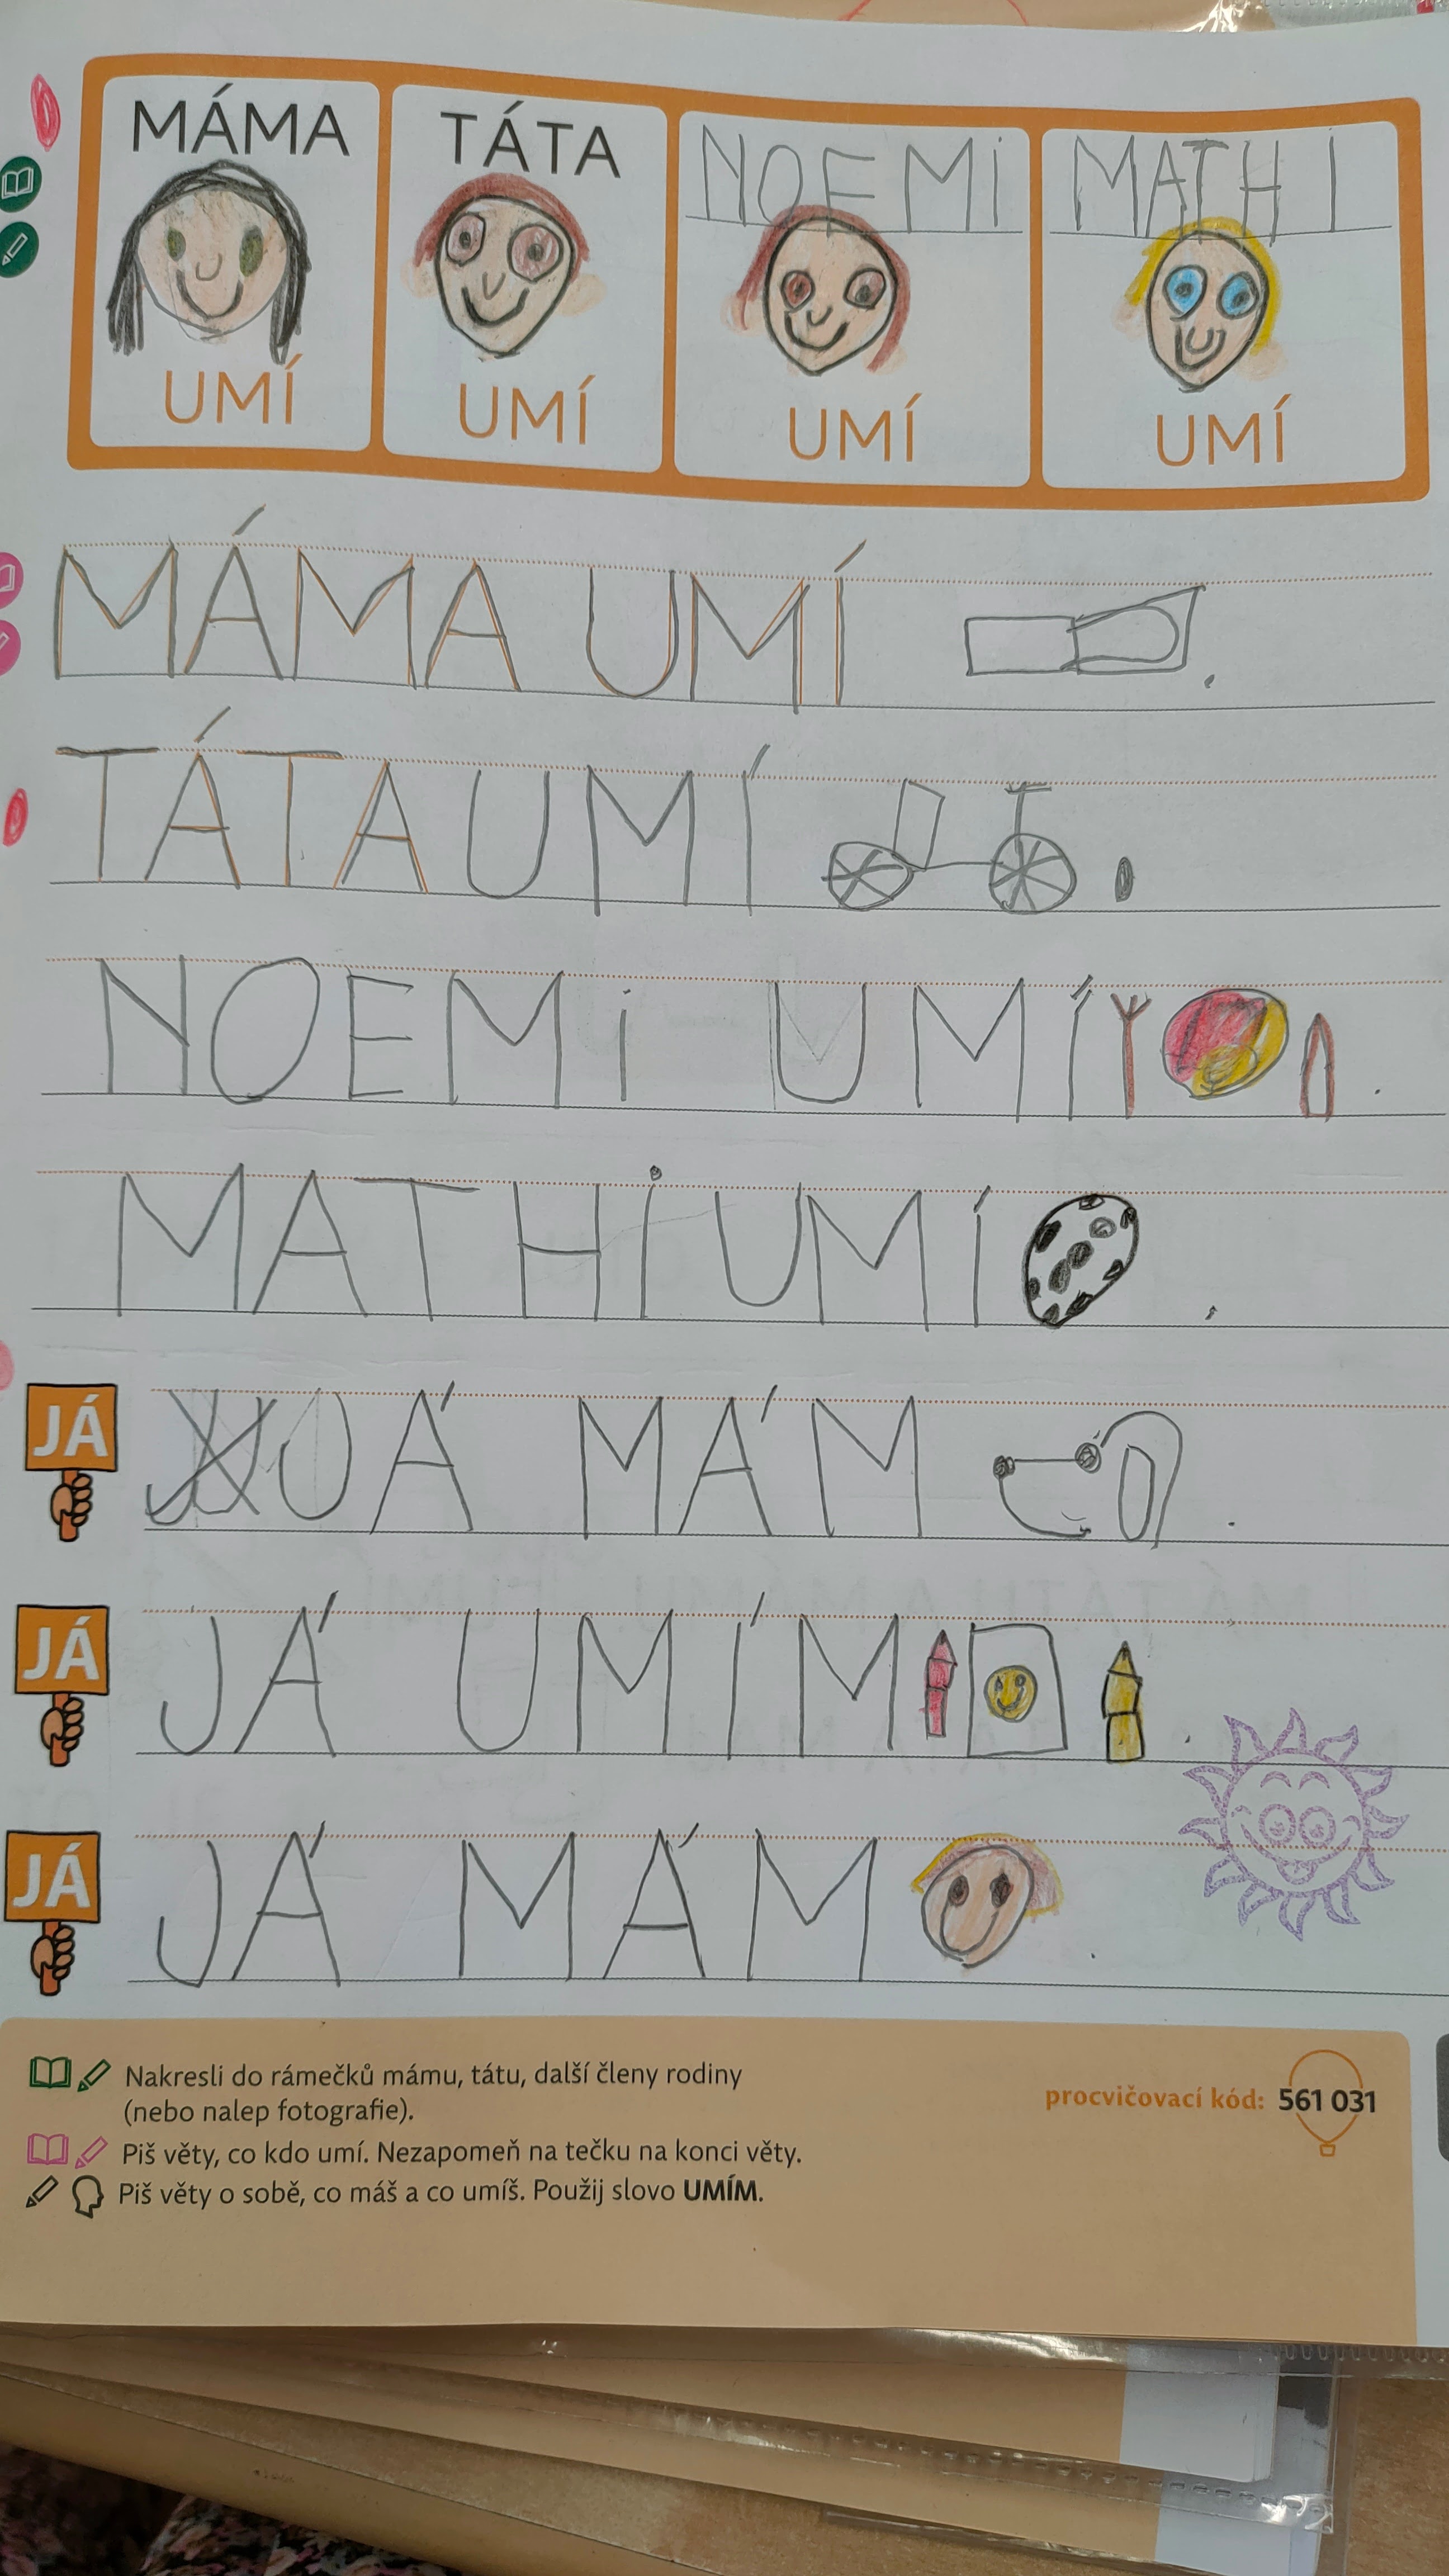 MÁMA TÁTA NOEMi MATHI
UMÍ UMÍ UMÍ UMÍ
MÁMA UMÍ .
TÁTA UMÍ .
NOEMi UMÍ .
MATHi UMÍ .
JÁ JÁ MÁM .
JÁ JÁ UMÍM .
JÁ JÁ MÁM .
Nakresli do rámečků mámu, tátu, další členy rodiny
(nebo nalep fotografie).
procvičovací kód: 561 031
Piš věty, co kdo umí. Nezapomeň na tečku na konci věty.
Piš věty o sobě, co máš a co umíš. Použij slovo UMÍM.